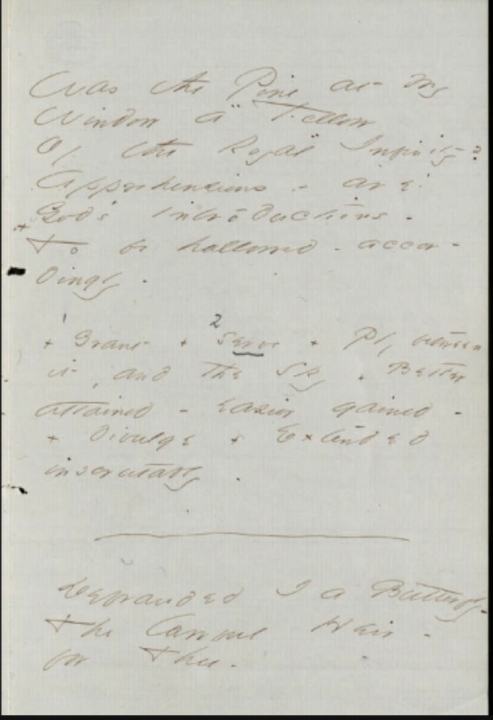 Was the Pine at my
Window a "Fellow
Of the Royal" Infinity?
Apprehensions - are
God's introductions -
+ To be hallowed - accor -
dingly -
+ 1 Grant + 2 Serve + Of,
it, and the Sky + Better
attained - easier gained -
+ Divulge + Extended
inscrutably.
Defrauded I a Butterfly -
The lawful Heir -
for Thee -